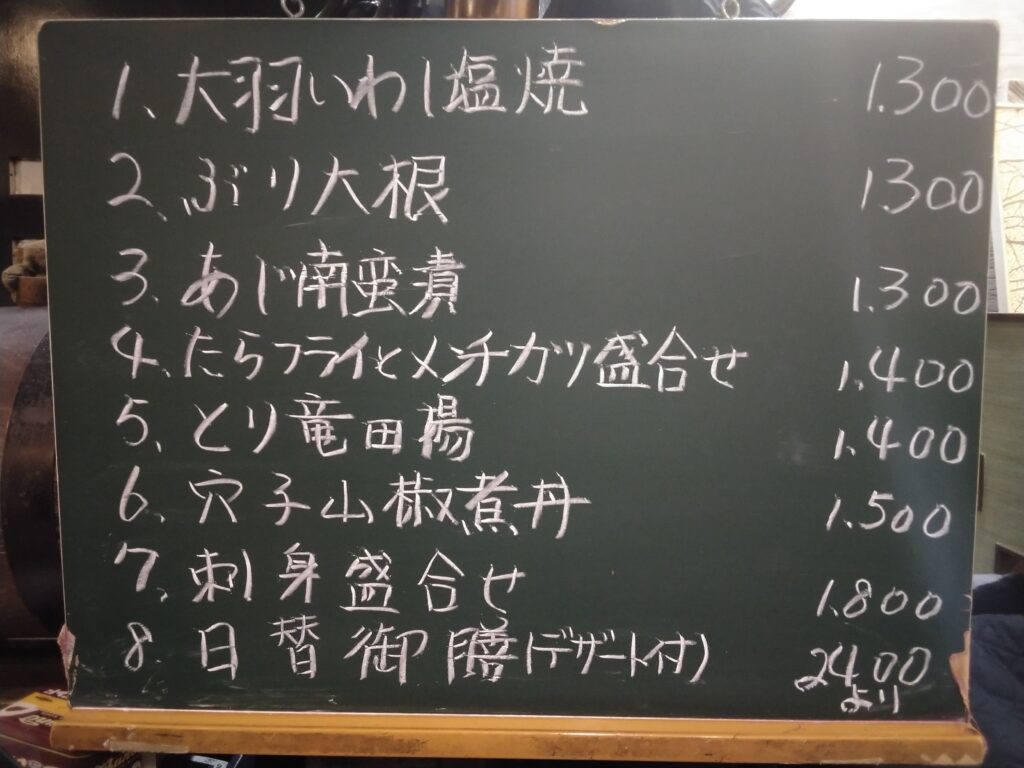 1、大羽いわし塩焼 1.300
2、ぶり大根 1300
3、あじ南蛮漬 1.300
4、たらフライとメンチカツ盛合せ 1.400
5、とり竜田揚 1.400
6、穴子山椒煮丼 1.500
7、刺身盛合せ 1.800
8、日替御膳(デザート付) 2400
より